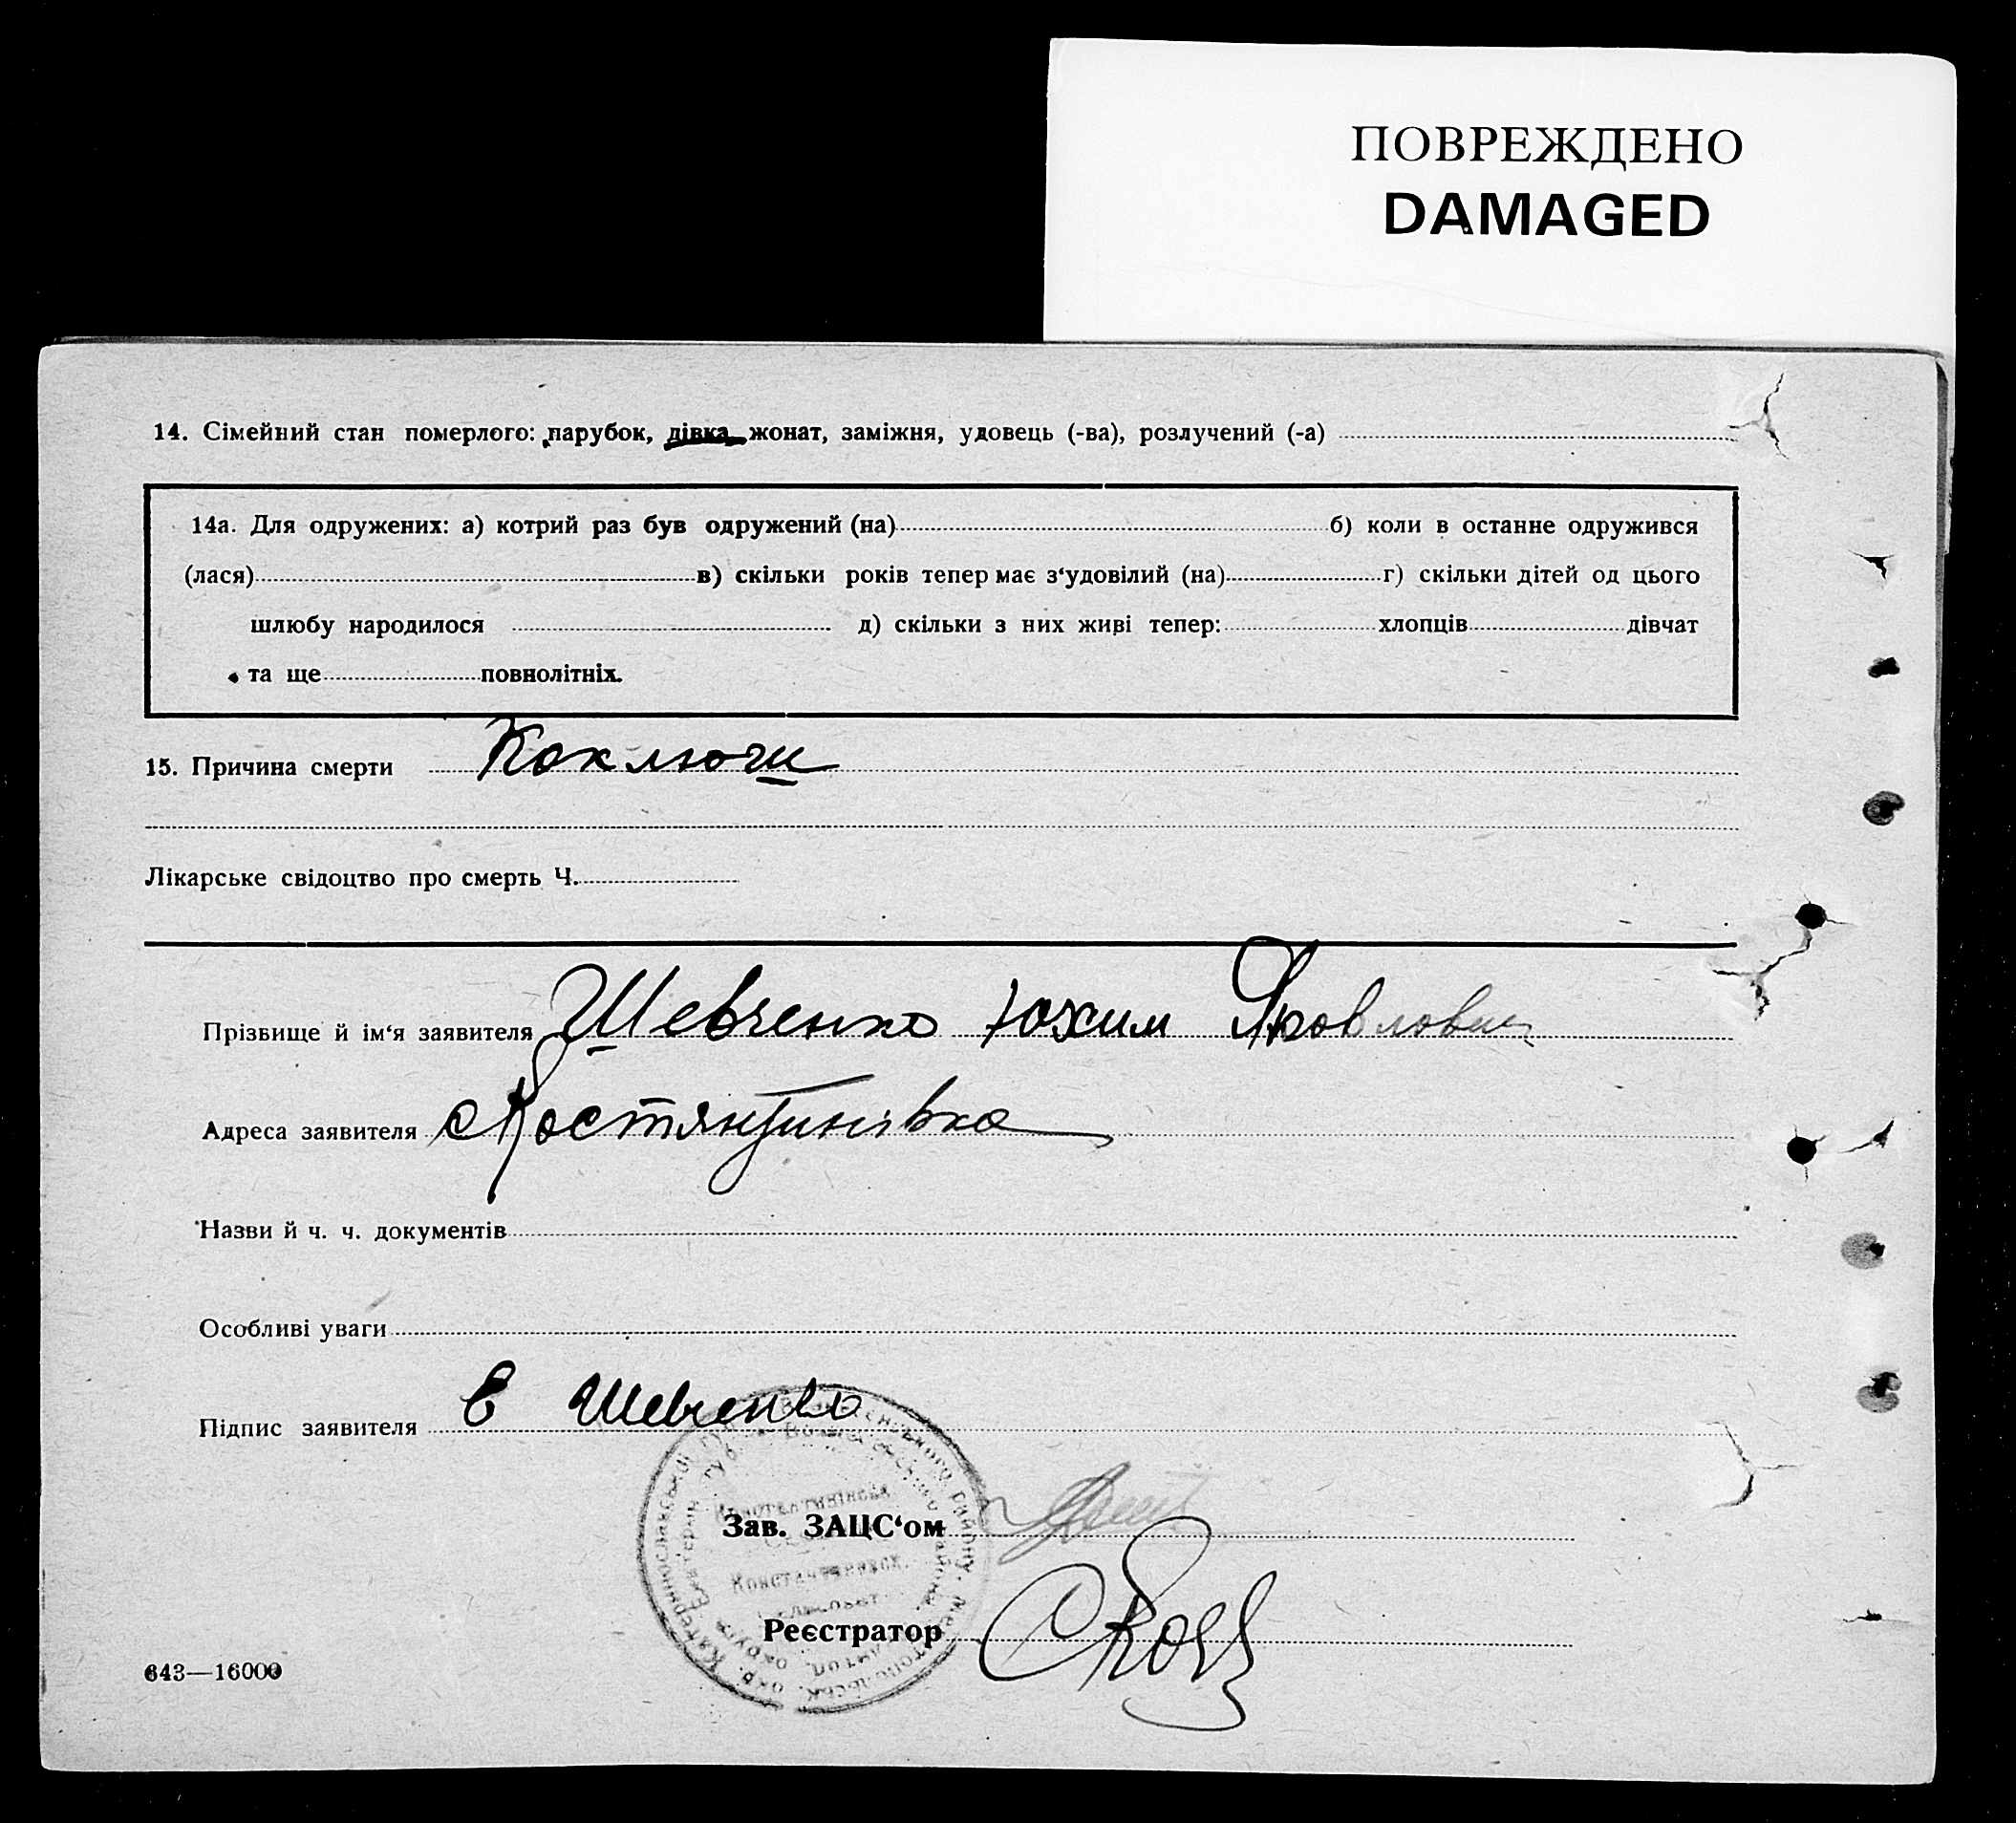 ПОВРЕЖДЕНО
DAMAGED
14. Сімейний стан померлого: парубок, дівка, жонат, заміжня, удовець (-ва), розлучений (-а)
14а. Для одружених: а) котрий раз був одружений (на) б) коли в останне одружився
(лася) в) скільки років тепер має з‘удовілий (на) г) скільки дітей од цього
шлюбу народилося д) скільки з них живі тепер: хлопців дівчат
та ще повнолітніх.
15. Причина смерти Коключи
Лікарське свідоцтво про смерть Ч.
Прізвище й ім‘я заявителя Шевченко Юхим
Адреса заявителя с Костянтинівка
Назви й ч. ч. документів
Особливі уваги
Підпис заявителя Е Шевченко
Зав. ЗАЦС‘ом
Реєстратор
643—16000